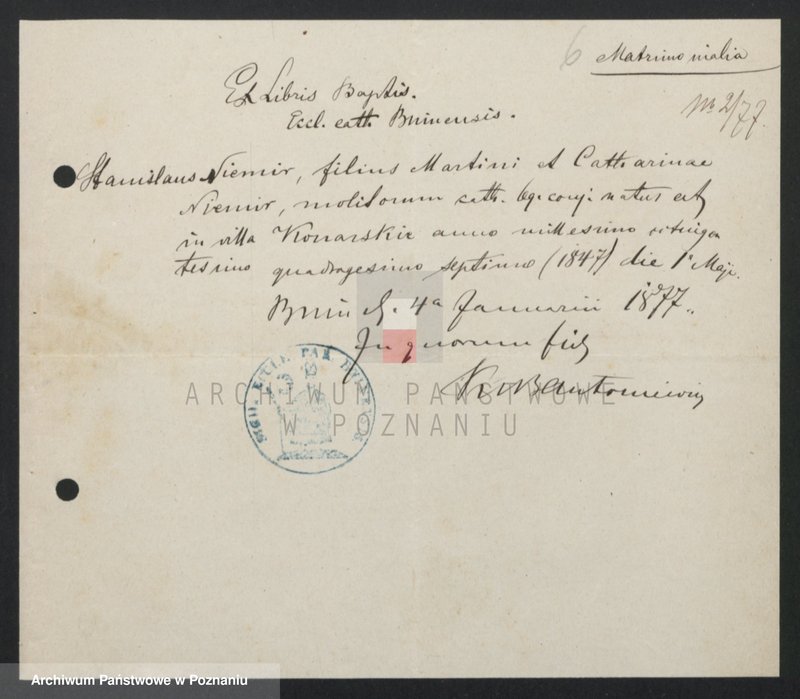 6 Matrimonialia
Ex Libris Baptis.
Eccl. cath. Bninensis.
No 2/77.
Stanislaus Niemir, filius Martini et Catharinae
Niemir, molitorum cath. legc. conj. natus est
in villa Konarskie anno millesimo octingen
tesimo quadragesimo septimo (1847) die 1a Maji.
Bnin d. 4a Januarii 1877.
In quorum fid
Antoniewicz
SIGIL. ECCLE. PAR.
ARCHIWUM PAŃSTWOWE
W POZNANIU
Archiwum Państwowe w Poznaniu